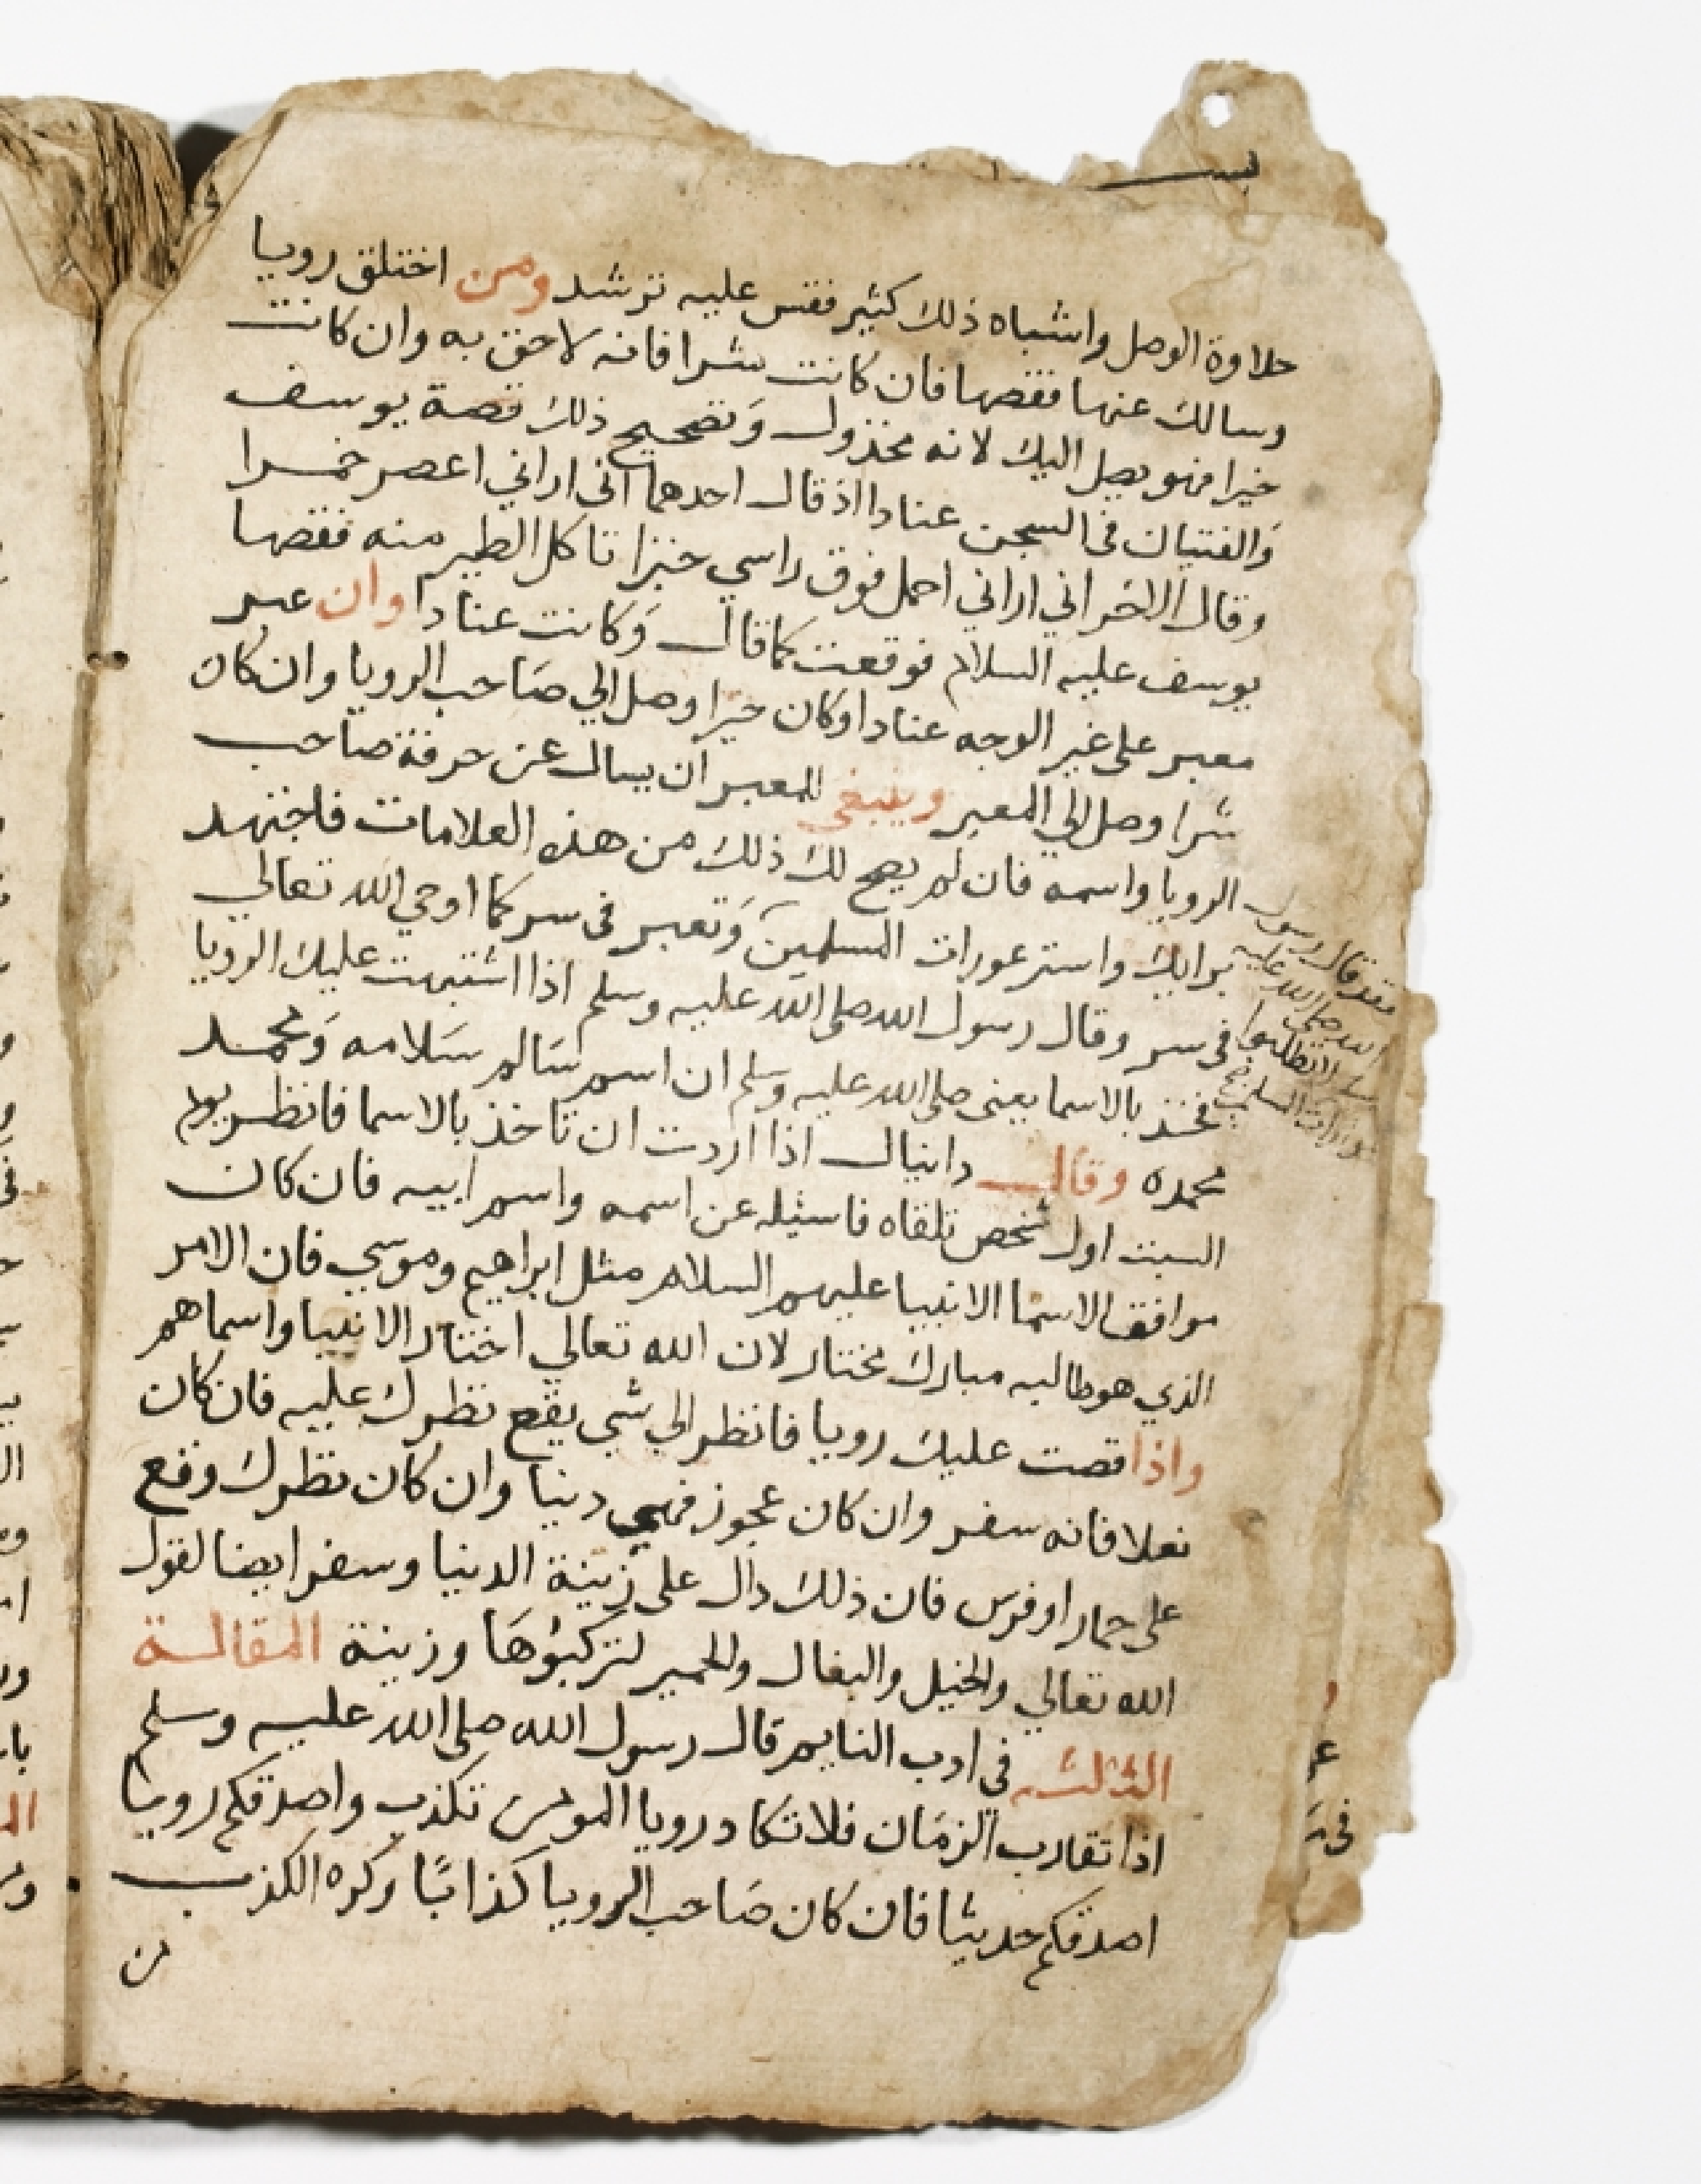 حلاوة الوصل واشباه ذلك كثير فقس عليه ترشد ومن اختلق رويا
وسالك عنها فقصها فان كانت شرا فانه لاحق به وان كانت
خيرا فهو يصل اليك لانه مخذول وتصحيح ذلك قصة يوسف
والفتيان في السجن عنادا اذ قال احدهما اني اراني اعصر خمرا
وقال الاخر اني اراني احمل فوق راسي خبزا تاكل الطير منه فقصها
يوسف عليه السلام فوقعت كما قال وكانت عنادا وان عبر
معبر على غير الوجه عنادا وكان خيرا وصل الي صاحب الرويا وان كان
شرا وصل الي المعبر وينبغي للمعبر ان يسال عن حرفة صاحب
الرويا واسمه فان لم يصح لك ذلك من هذه العلامات فاجتهد
برايك واستر عورات المسلمين وتعبر في سر كما اوحي الله تعالي
في سر وقال رسول الله صلى الله عليه وسلم اذا اشتبهت عليك الرويا
فخذ بالاسما يعني صلى الله عليه وسلم ان اسم سالم سلامه ومحمد
محمده وقال دانيال اذا اردت ان تاخذ بالاسما فانظر يوم
السبت اول شخص تلقاه فاسئله عن اسمه واسم ابيه فان كان
موافقا لاسما الانبيا عليهم السلام مثل ابراهيم وموسي فان الامر
الذي هو طالبه مبارك مختار لان الله تعالي اختار الانبيا واسماهم
واذا قصت عليك رويا فانظر الي شي يقع نظرك عليه فان كان
نعلا فانه سفر وان كان عجوز فهي دنيا وان كان نظرك وقع
على حمار او فرس فان ذلك دال على زينة الدنيا وسفر ايضا لقول
الله تعالي والخيل والبغال والحمير لتركبوها وزينة المقالة
الثالثه في ادب النايم قال رسول الله صلى الله عليه وسلم
اذا تقارب الزمان فلا تكاد رويا المومن تكذب واصدقكم رويا
اصدقكم حديثا فان كان صاحب الرويا كذابا وكره الكذب
من
فقد قال رسول
الله صلى الله عليه
وسلم لا تطلبوا
عورات المسلمين